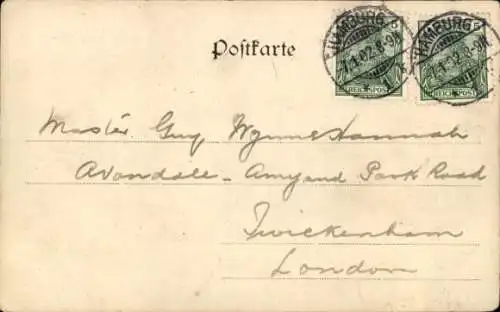 Postkarte
HAMBURG
1.1.02.8-9N
REICHSPOST
HAMBURG
1.1.02.8-9N
REICHSPOST
Master Guy Wynne Hannah
Avondale - Amyand Park Road
Twickenham
London